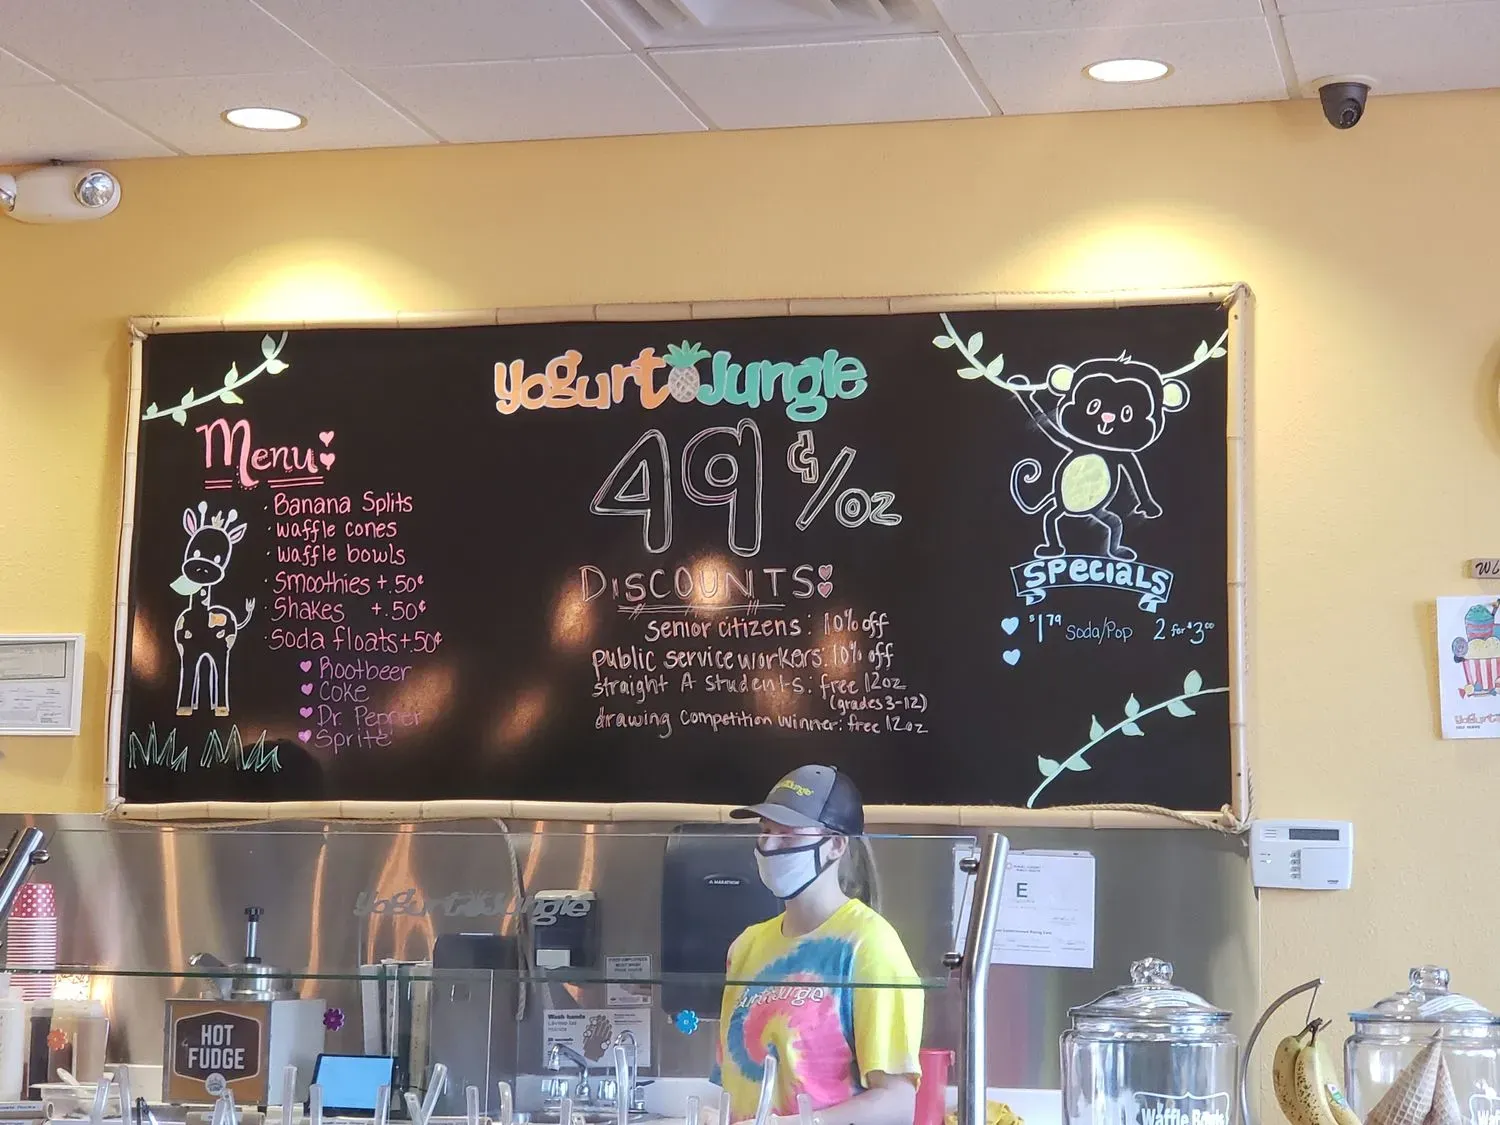 Yogurt Jungle
Menu:
· Banana Splits
· waffle cones
· waffle bowls
· Smoothies + .50¢
· Shakes +.50¢
· Soda floats +.50¢
♥ Rootbeer
♥ Coke
♥ Dr. Pepper
♥ Sprite
49¢/oz
DISCOUNTS:
senior citizens: 10% off
public service workers: 10% off
straight A students: free 12oz
(grades 3-12)
drawing competition winner: free 12oz
SPECIALS
$1.79 Soda/Pop 2 for $3.00
Yogurt Jungle
A MARATHON
E
HOT
FUDGE
Wash hands
Waffle Bowls